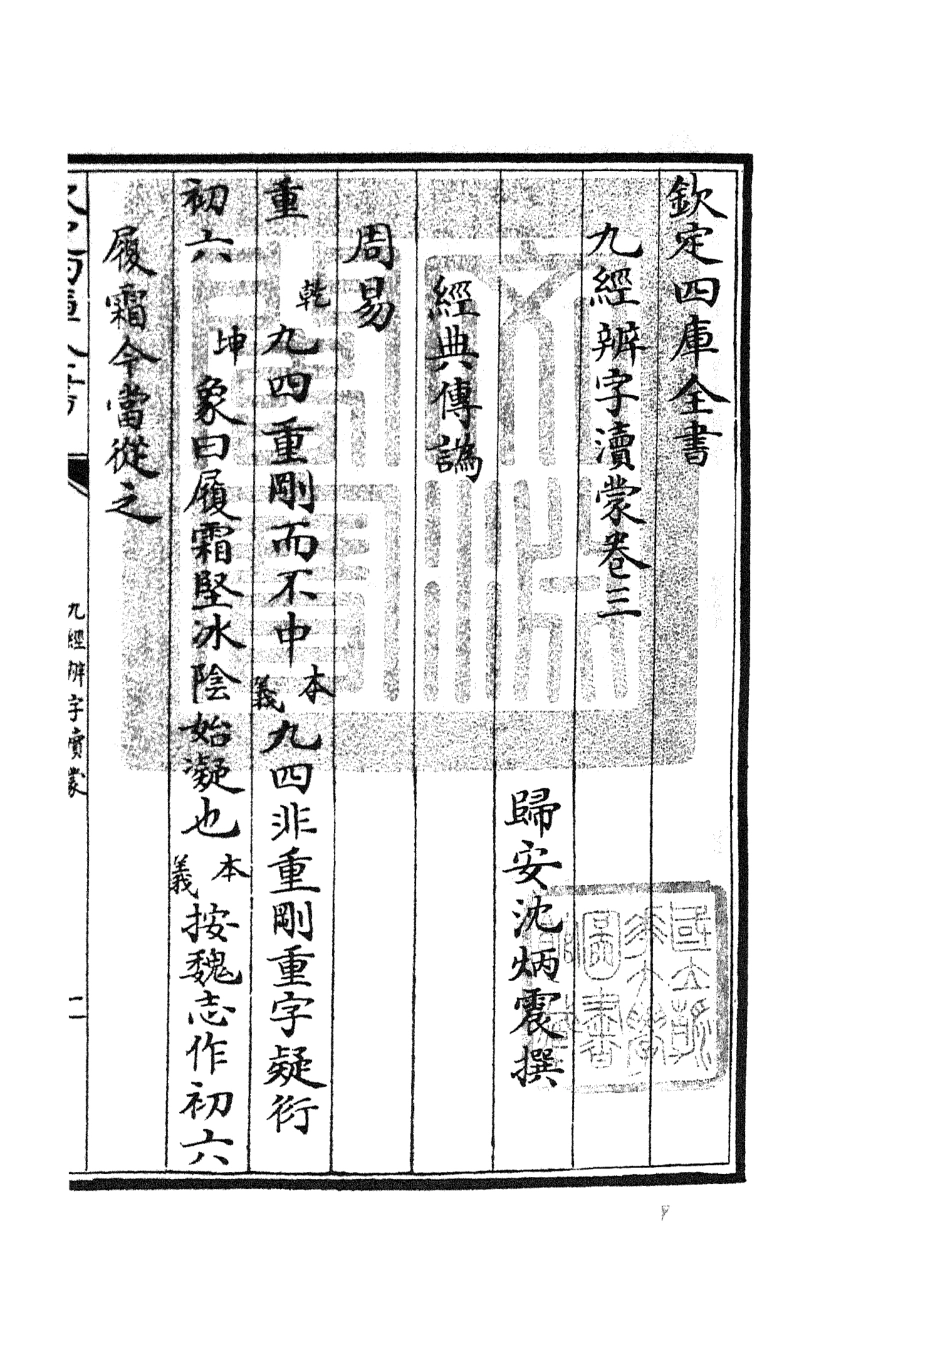 欽定四庫全書
九經辨字瀆蒙卷三
歸安沈炳震撰
經典傳譌
周易
重乾九四重剛而不中本義九四非重剛重字疑衍
初六坤象曰履霜堅冰陰始凝也本義按魏志作初六
履霜今當從之
九經辨字瀆蒙